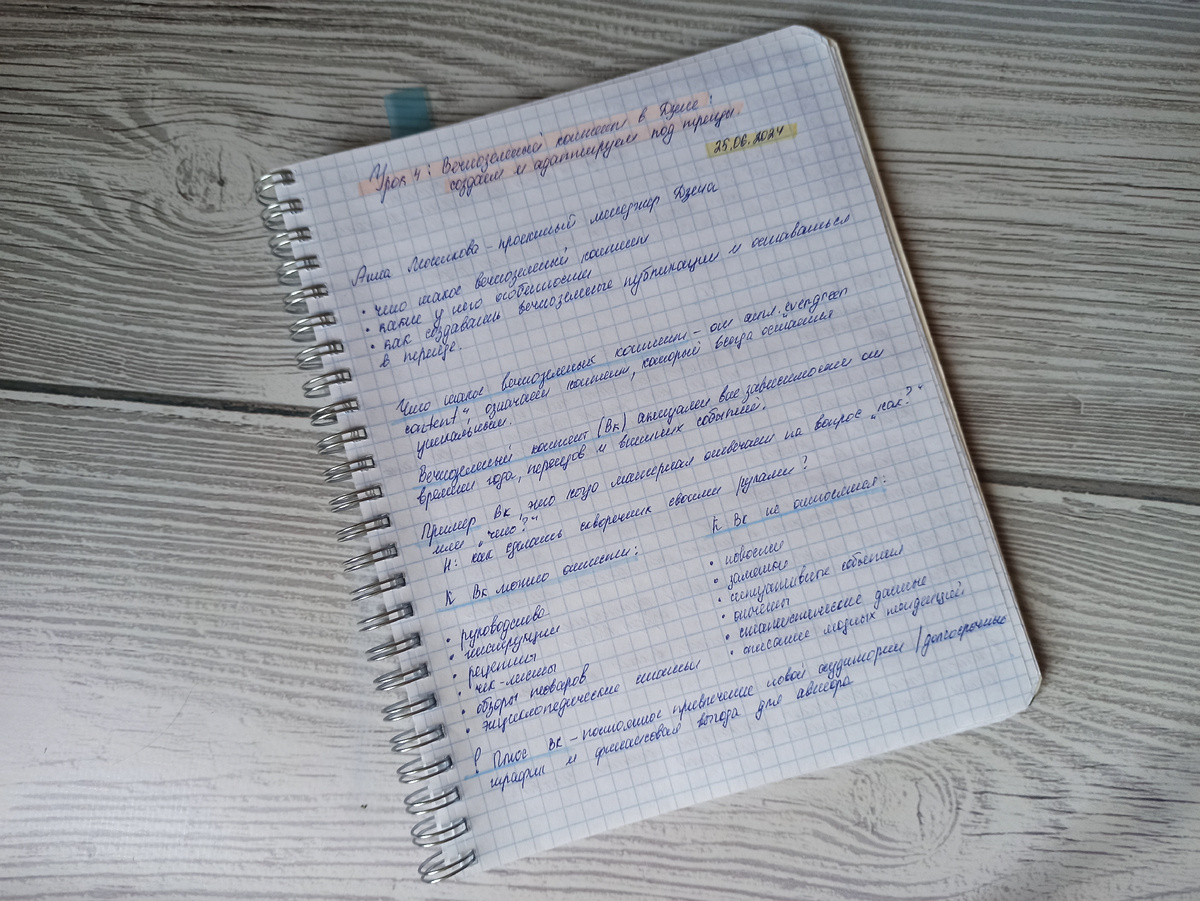 Урок 4: Вечнозеленый контент в Дзене:
создаем и адаптируем под тренды.
25.06.2024
Анна - проектный менеджер Дзена
• что такое вечнозеленый контент
• какие у него особенности
• как создавать вечнозеленые публикации и оставаться
в тренде.
Что такое вечнозеленых контент - от англ. "evergreen
content" означает контент, который всегда остаётся
уникальным.
Вечнозеленый контент (Вк) актуален вне зависимости от
времени года, трендов и внешних событий.
Пример Вк это когда материал отвечает на вопрос „как?“
или „что?“
Н: как сделать скворечник своими руками?
К Вк можно отнести:
• руководства
• инструкции
• рецепты
• чек-листы
• обзоры товаров
• энциклопедические статьи
К Вк не относится:
• новости
• заметки
• ситуативные события
• отчёты
• статистические данные
• описание модных тенденций
! Плюс Вк - постоянное привлечение новой аудитории / долгосрочный
трафик и финансовая выгода для автора